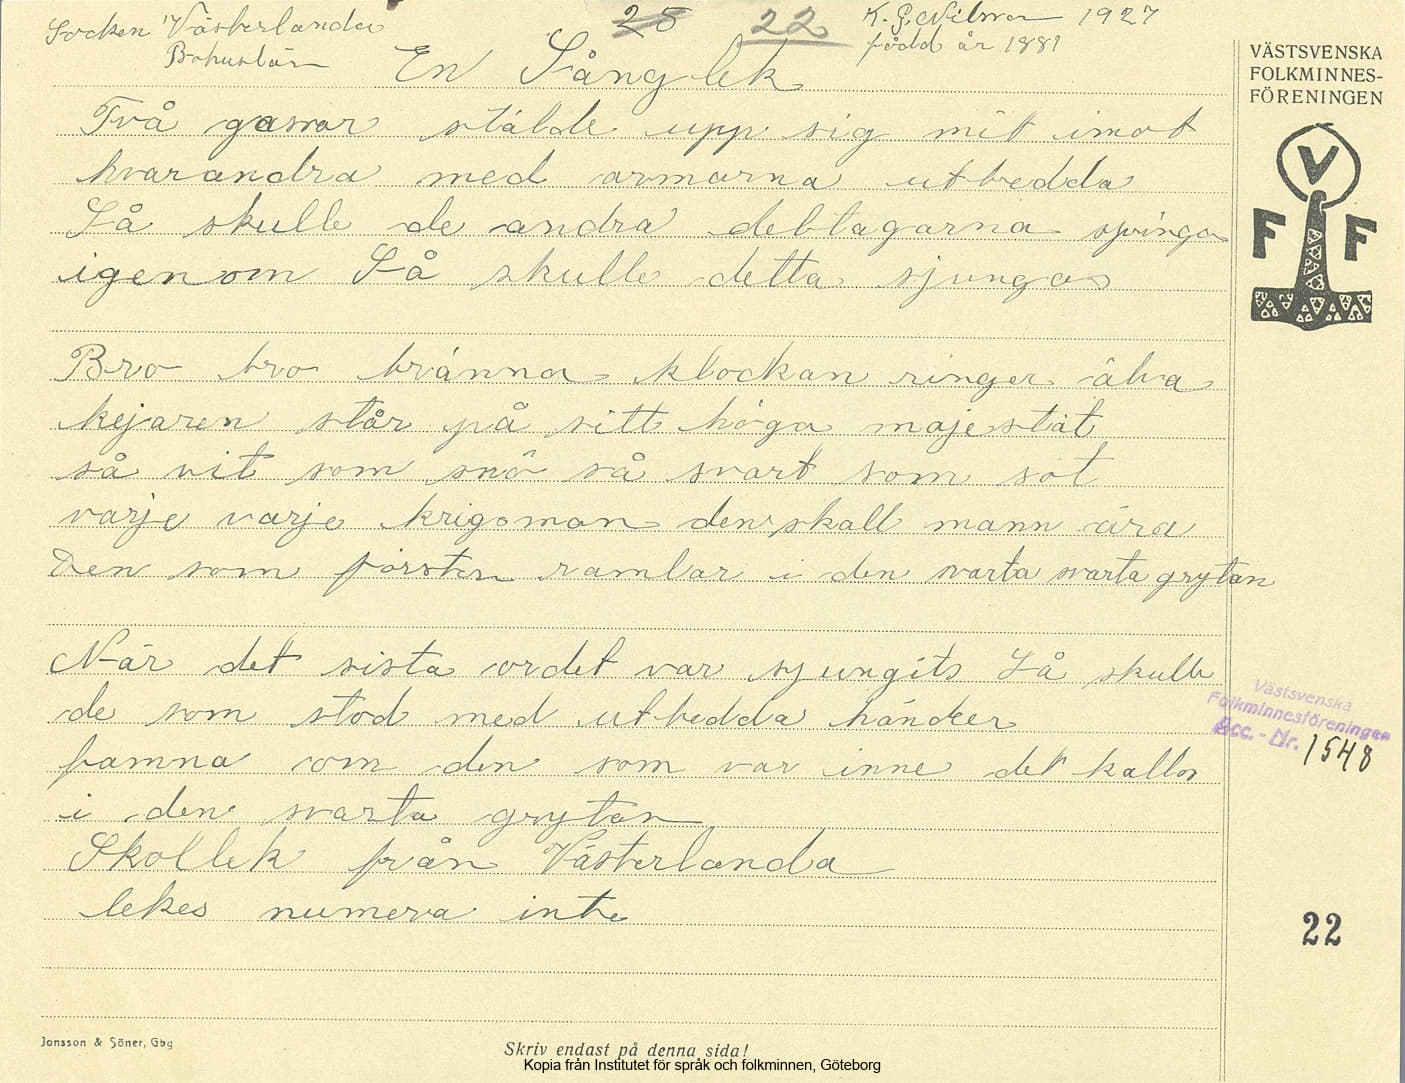 Socken Västerlanda
Bohuslän
25 22
K. G. Nilsson 1927
född år 1881
VÄSTSVENSKA
FOLKMINNES-
FÖRENINGEN
V
F F
En Sånglek
Två gossar stälde upp sig mit imot
hvarandra med armarna utbredda
Så skulle de andra deltagarna springa
igenom Så skulle detta sjungas
Bro bro bränna klockan ringer älva
kejaren står på sitt höga majestät
så vit som snö så svart som sot
varje varje krigsman den skall mann ära
Den som försten ramlar i den svarta svarta grytan
När det sista ordet var sjungits Så skulle
de som stod med utbredda händer
famna om den som var inne det kallas
i den svarta grytan
Skollek från Västerlanda
lekes numera inte
Västsvenska
Folkminnesföreningen
Acc.-Nr. 1548
22
Jonsson & Söner, Gbg
Skriv endast på denna sida!
Kopia från Institutet för språk och folkminnen, Göteborg